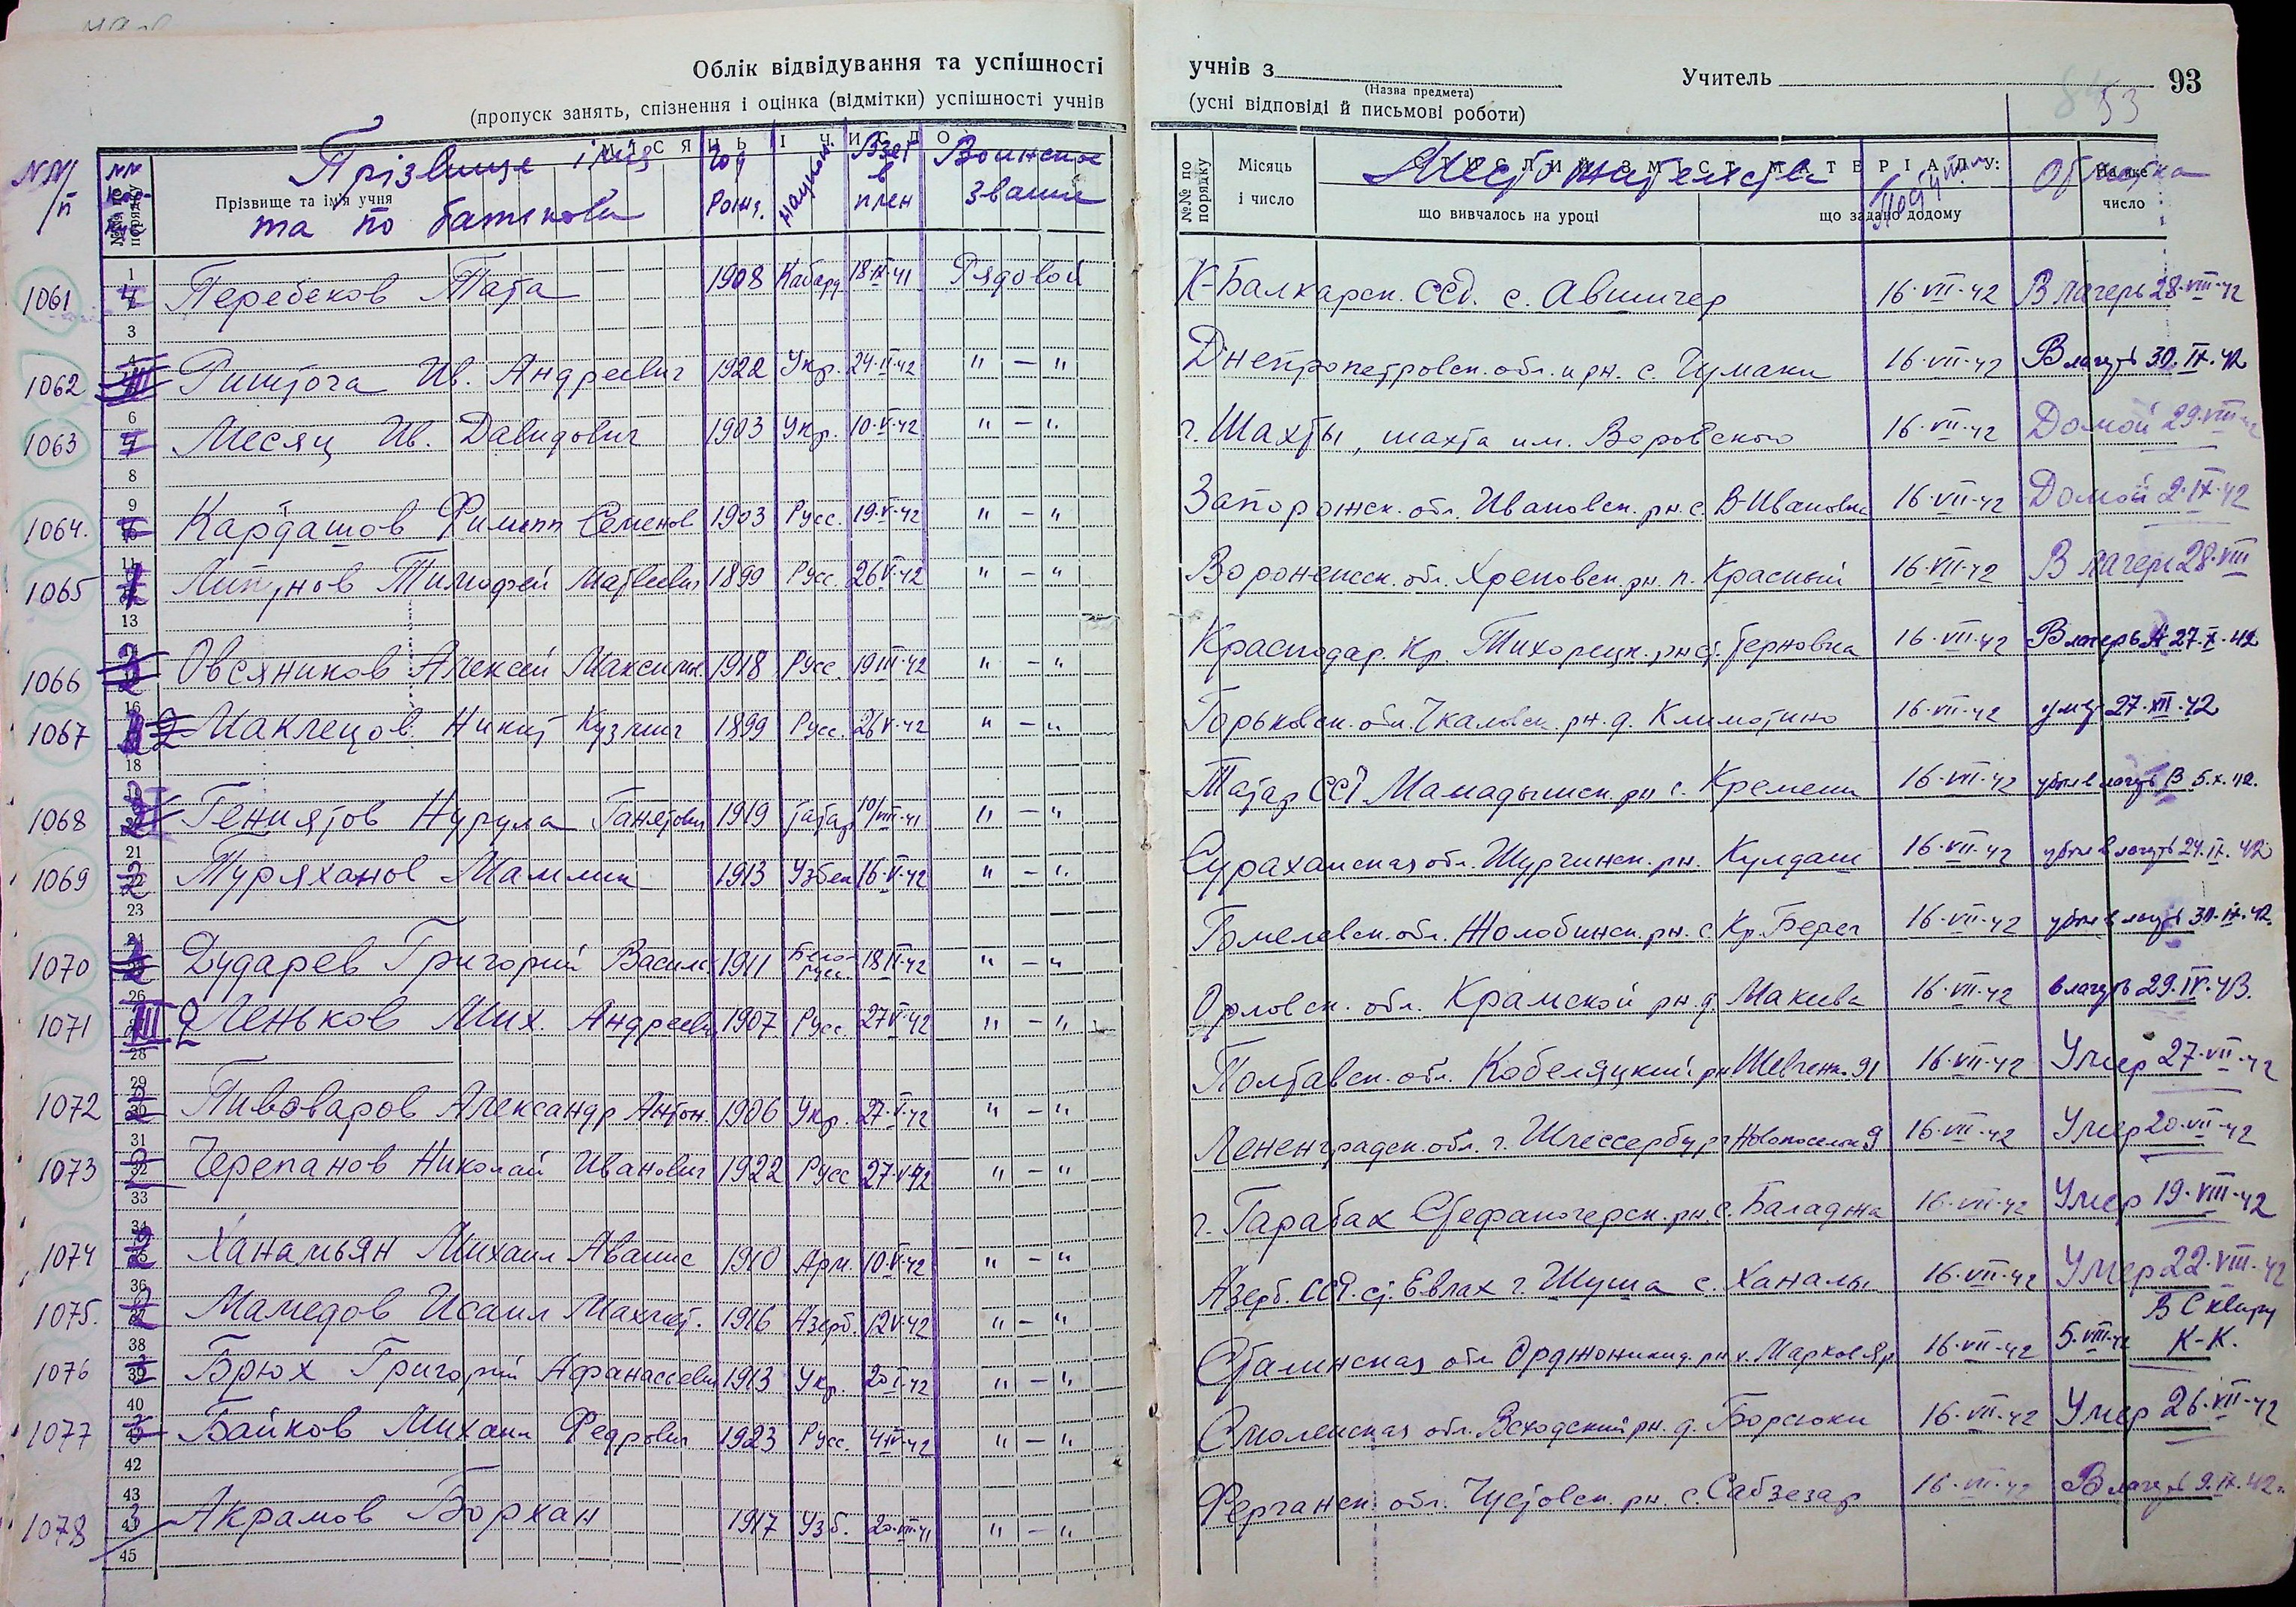 Облік відвідування та успішності учнів з Учитель 93
(Назва предмета)
53
(пропуск занять, спізнення і оцінка (відмітки) успішності учнів (усні відповіді й письмові роботи)
№№ п/п
Прізвище та ім'я учня
Прізвище і імя та по батькові
Год Рожд.
Взят в плен
Воинское звание
№№ по порядку
Місяць і число
що вивчалось на уроці
що задано додому
На яке число
1061 Перебеков Тата 1908 Кабард 18·IX·41 Рядовой К-Балкарск. ССР. с. Авшигер 16·VII·42 В лагерь 28·VIII·42
1062 Риштога Ив. Андреевич 1922 Укр. 24·II·42 " — " Днепропетровск. обл. и рн. с. Чумаки 16·VII·42 В лагерь 30.IX·42
1063 Месяц Ив. Давидович 1903 Укр. 10·V·42 " — " г. Шахты, шахта им. Воровского 16·VII·42 Домой 29·VIII
1064. Кардашов Филипп Семенов 1903 Русс. 19·V·42 " — " Запорожск. обл. Ивановск. рн. с. В-Ивановка 16·VII·42 Домой 2·IX·42
1065 Липунов Тимофей Матвеевич 1899 Русс. 26·V·42 " — " Воронежск. обл. Хреновск. рн. п. Красный 16·VII·42 В лагерь 28·VIII
1066 Овсяников Алексей Максимов. 1918 Русс. 19·III·42 " — " Краснодар. Кр. Тихорецк. рн. ст. Терновка 16·VII·42 В лагерь 27·X·42
1067 Маклецов Никит Кузмич 1899 Русс. 26·V·42 " — " Горьковск. обл. Чкаловск. рн. д. Климотино 16·VII·42 27·XII·42
1068 Гениятов Нурула Ганятович 1919 Татар 10/VIII·41 " — " Татар ССР Мамадышск. рн с. Кремени 16·VII·42 убыл в лагерь 5.X.42.
1069 Туряханов Маллик 1913 Узбек 16·V·42 " — " Сураханская обл. Шурчинск. рн. Кулдаш 16·VII·42 убыл в лагерь 24.IX.42
1070 Дударев Григорий Василь 1911 Бело-русс. 18·II·42 " — " Гомелевск. обл. Жлобинск. рн. с Кр. Берег 16·VII·42 убыл в лагерь 30.IX.42.
1071 Леньков Мих. Андреевич 1907 Русс. 27·V·42 " — " Орловск. обл. Крамской рн. д. Макеева 16·VII·42 в лагерь 29.IV.43.
1072 Пивоваров Александр Антон. 1906 Укр. 27·V·42 " — " Полтавск. обл. Кобеляцкий рн Шевченк. 91 16·VII·42 Умер 27·VII·42
1073 Черепанов Николай Иванович 1922 Русс 27·V·42 " — " Лененградск. обл. г. Шлессербург Новопоселк 9 16·VII·42 Умер 20·VII·42
1074 Ханамьян Михаил Аванис 1910 Арм. 10·V·42 " — " г. Гарабах Стефаногерск. рн. с. Баладжа 16·VII·42 Умер 19·VIII·42
1075. Мамедов Исаил Махмет. 1916 Азерб. 12·V·42 " — " Азерб. ССР. ст. Евлах г. Шуша с. Ханалы 16·VII·42 Умер 22·VIII·42
1076 Брюх Григорий Афанасьевич 1913 Укр. " — " Сталинская обл. Орджоникид. рн х. Марков Яр 16·VII·42 5·VIII·42 В Сквиру К-К.
1077 Байков Михаил Федрович 1923 Русс. 4·IV·42 " — " Смоленская обл. Всходский рн. д. Борсюки 16·VII·42 Умер 26·VII·42
1078 Акрамов Борхан 1917 Узб. 20·VIII·41 " — " Ферганск. обл. Чустовск. рн. с. Сабзезар 16·VII·42 В лагерь 9.IX.42